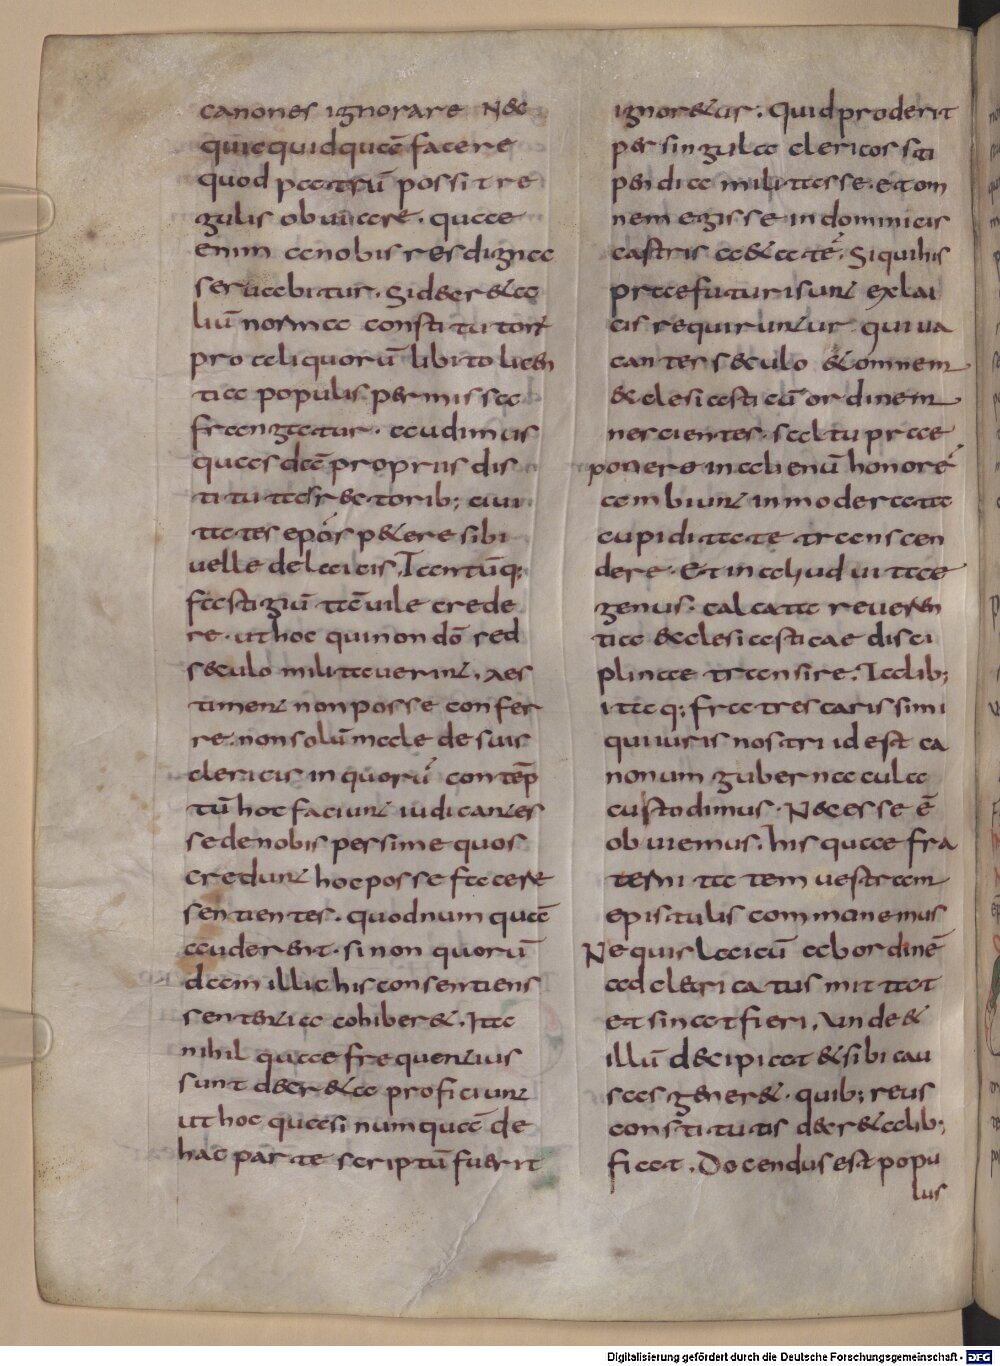 canones ignorare Nec
quicquid quā facere
quod patrū possit re
gulis obuiare. quae
enim a nobis res digna
seruabitur. Si decreta
liū norma constitutorū
pro aliquorū libito licen
tia populis permissa
frangatur. audimus
quasdā propriis dis
titutas rectorib; ciui
tates epōs petere sibi
uelle de laicis. Tantūq;
fastigiū tā uile crede
re. ut hoc qui non dō sed
seculo militauerint. aes
timent non posse confer
re. non solū male de suis
clericis in quorū contēp
tū hoc faciunt iudicantes
sed e nobis pessime quos
credunt hoc posse facere
sentientes. quod numquā
auderent. si non quorū
dam illic his consentiens
sententia cohiberet. Ita
nihil quae frequentius
sunt decreta proficiunt
ut hoc quasi numquā de
hac parte scriptū fuerit
ignoretur. Quid proderit
per singula clericos sti
pendia militasse. et om
nem egisse in dominicis
castris aetatē. Si qui his
praefuturi sunt ex lai
cis requiruntur qui ua
cantes seculo et omnem
ecclesiasticū ordinem
nescientes. saltu prae
postero in alienū honorē
ambiunt inmoderata
cupiditate transcen
dere. Et in aliud uitae
genus. calcata reueren
tia ecclesiasticae disci
plinae transire. Talib;
itaq; fratres carissimi
qui iuris nostri id est ca
nonum gubernacula
custodimus. Necesse ē
obuiemus. his quae fra
ternitatem uestram
epistulis commonemus
Ne quis laicū ab ordinē
ad clericatus mittat
et sinat fieri. Unde et
illū decipiat et sibi cau
sas generet. quib; reus
constitutis decretalib;
fiat. Docendus est popu
lus
Digitalisierung gefördert durch die Deutsche Forschungsgemeinschaft - DFG